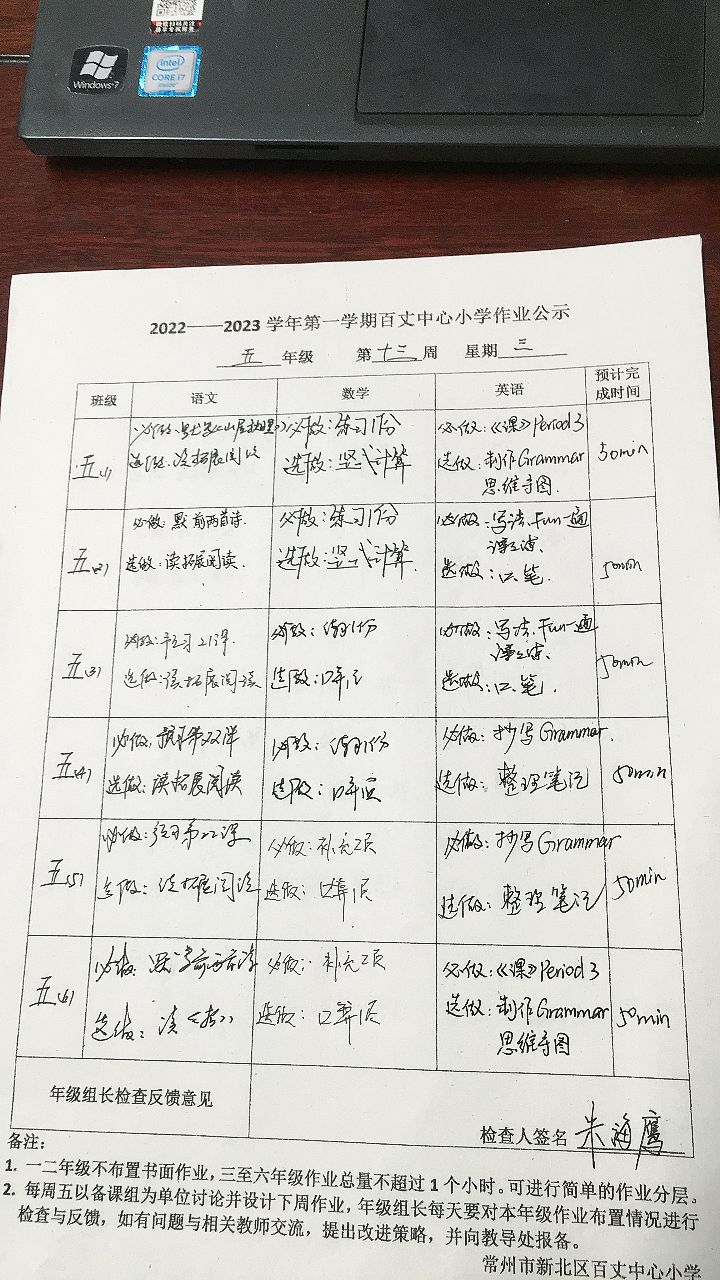 Windows 7
intel
CORE i7
inside
2022——2023 学年第一学期百丈中心小学作业公示
五 年级 第 十三 周 星期 三
班级 语文 数学 英语 预计完成时间
五(1)
必做:练习1份
选做:竖式计算
必做:《课》Period 3
选做:制作Grammar
思维导图.
50min
五(2)
必做:默前两首诗.
选做:读拓展阅读.
必做:练习1份
选做:竖式计算.
必做:写法.Fun一遍
选做:口笔.
50min
五(3)
必做:预习21课.
选做:读拓展阅读
必做:
选做:
必做:写法.Fun一遍
选做:口笔.
50min
五(4)
必做:
选做:读拓展阅读
必做:
选做:
必做:抄写Grammar.
选做:整理笔记
50min
五(5)
必做:
选做:读拓展阅读
必做:补充2页
选做:口算1页
必做:抄写Grammar
选做:整理笔记
50min
五(6)
必做:
选做:
必做:补充2页
选做:口算1页
必做:《课》Period 3
选做:制作Grammar
思维导图
50min
年级组长检查反馈意见
检查人签名 朱海鹰
备注:
1. 一二年级不布置书面作业,三至六年级作业总量不超过 1 个小时。可进行简单的作业分层。
2. 每周五以备课组为单位讨论并设计下周作业,年级组长每天要对本年级作业布置情况进行
检查与反馈,如有问题与相关教师交流,提出改进策略,并向教导处报备。
常州市新北区百丈中心小学